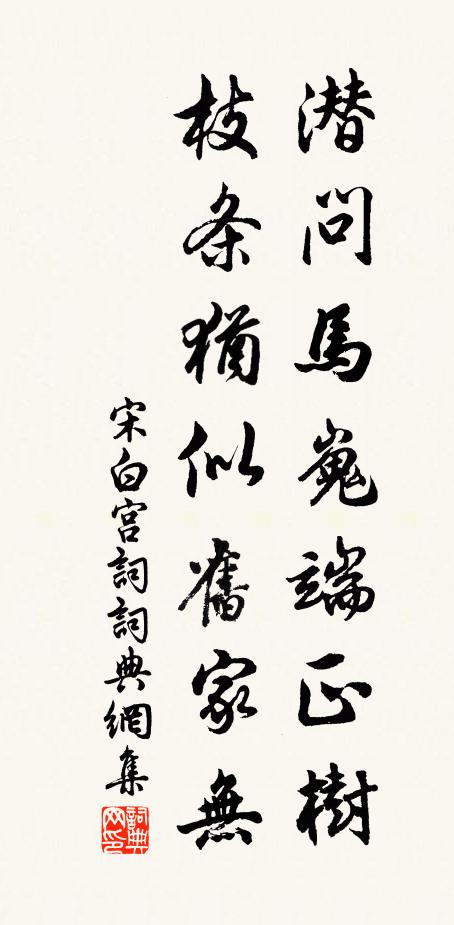 潜問馬嵬端正樹
枝条猶似舊家無
宋白宫詞詞典網集
詞典网印